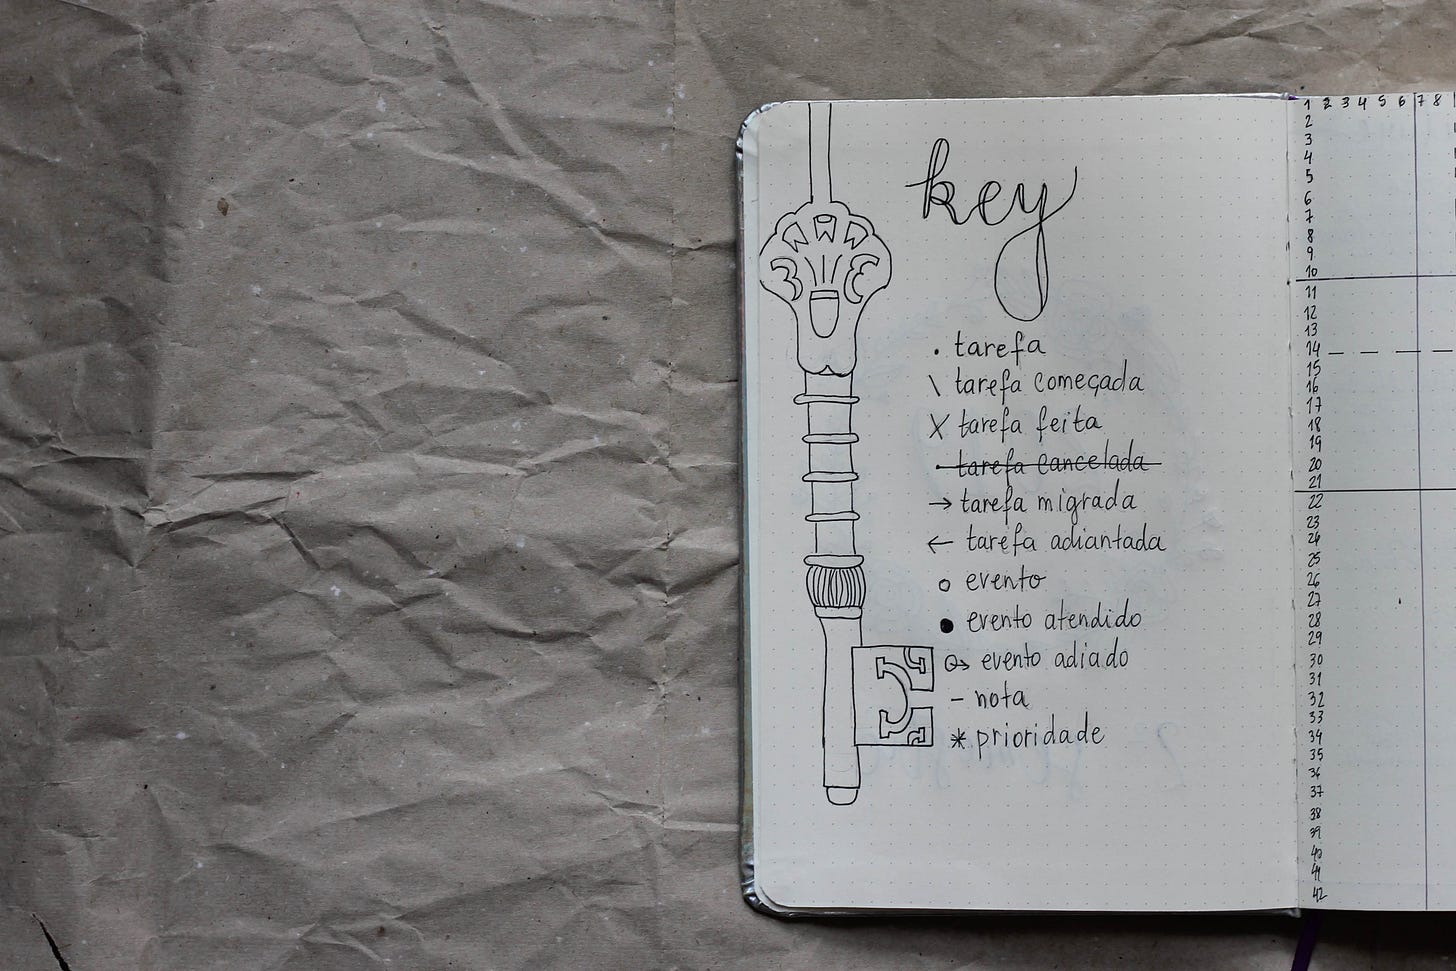 key
. tarefa
\ tarefa começada
X tarefa feita
• tarefa cancelada
→ tarefa migrada
← tarefa adiantada
o evento
● evento atendido
o→ evento adiado
– nota
* prioridade
1 2 3 4 5 6 7 8
2
3
4
5
6
7
8
9
10
11
12
13
14
15
16
17
18
19
20
21
22
23
24
25
26
27
28
29
30
31
32
33
34
35
36
37
38
39
40
41
42